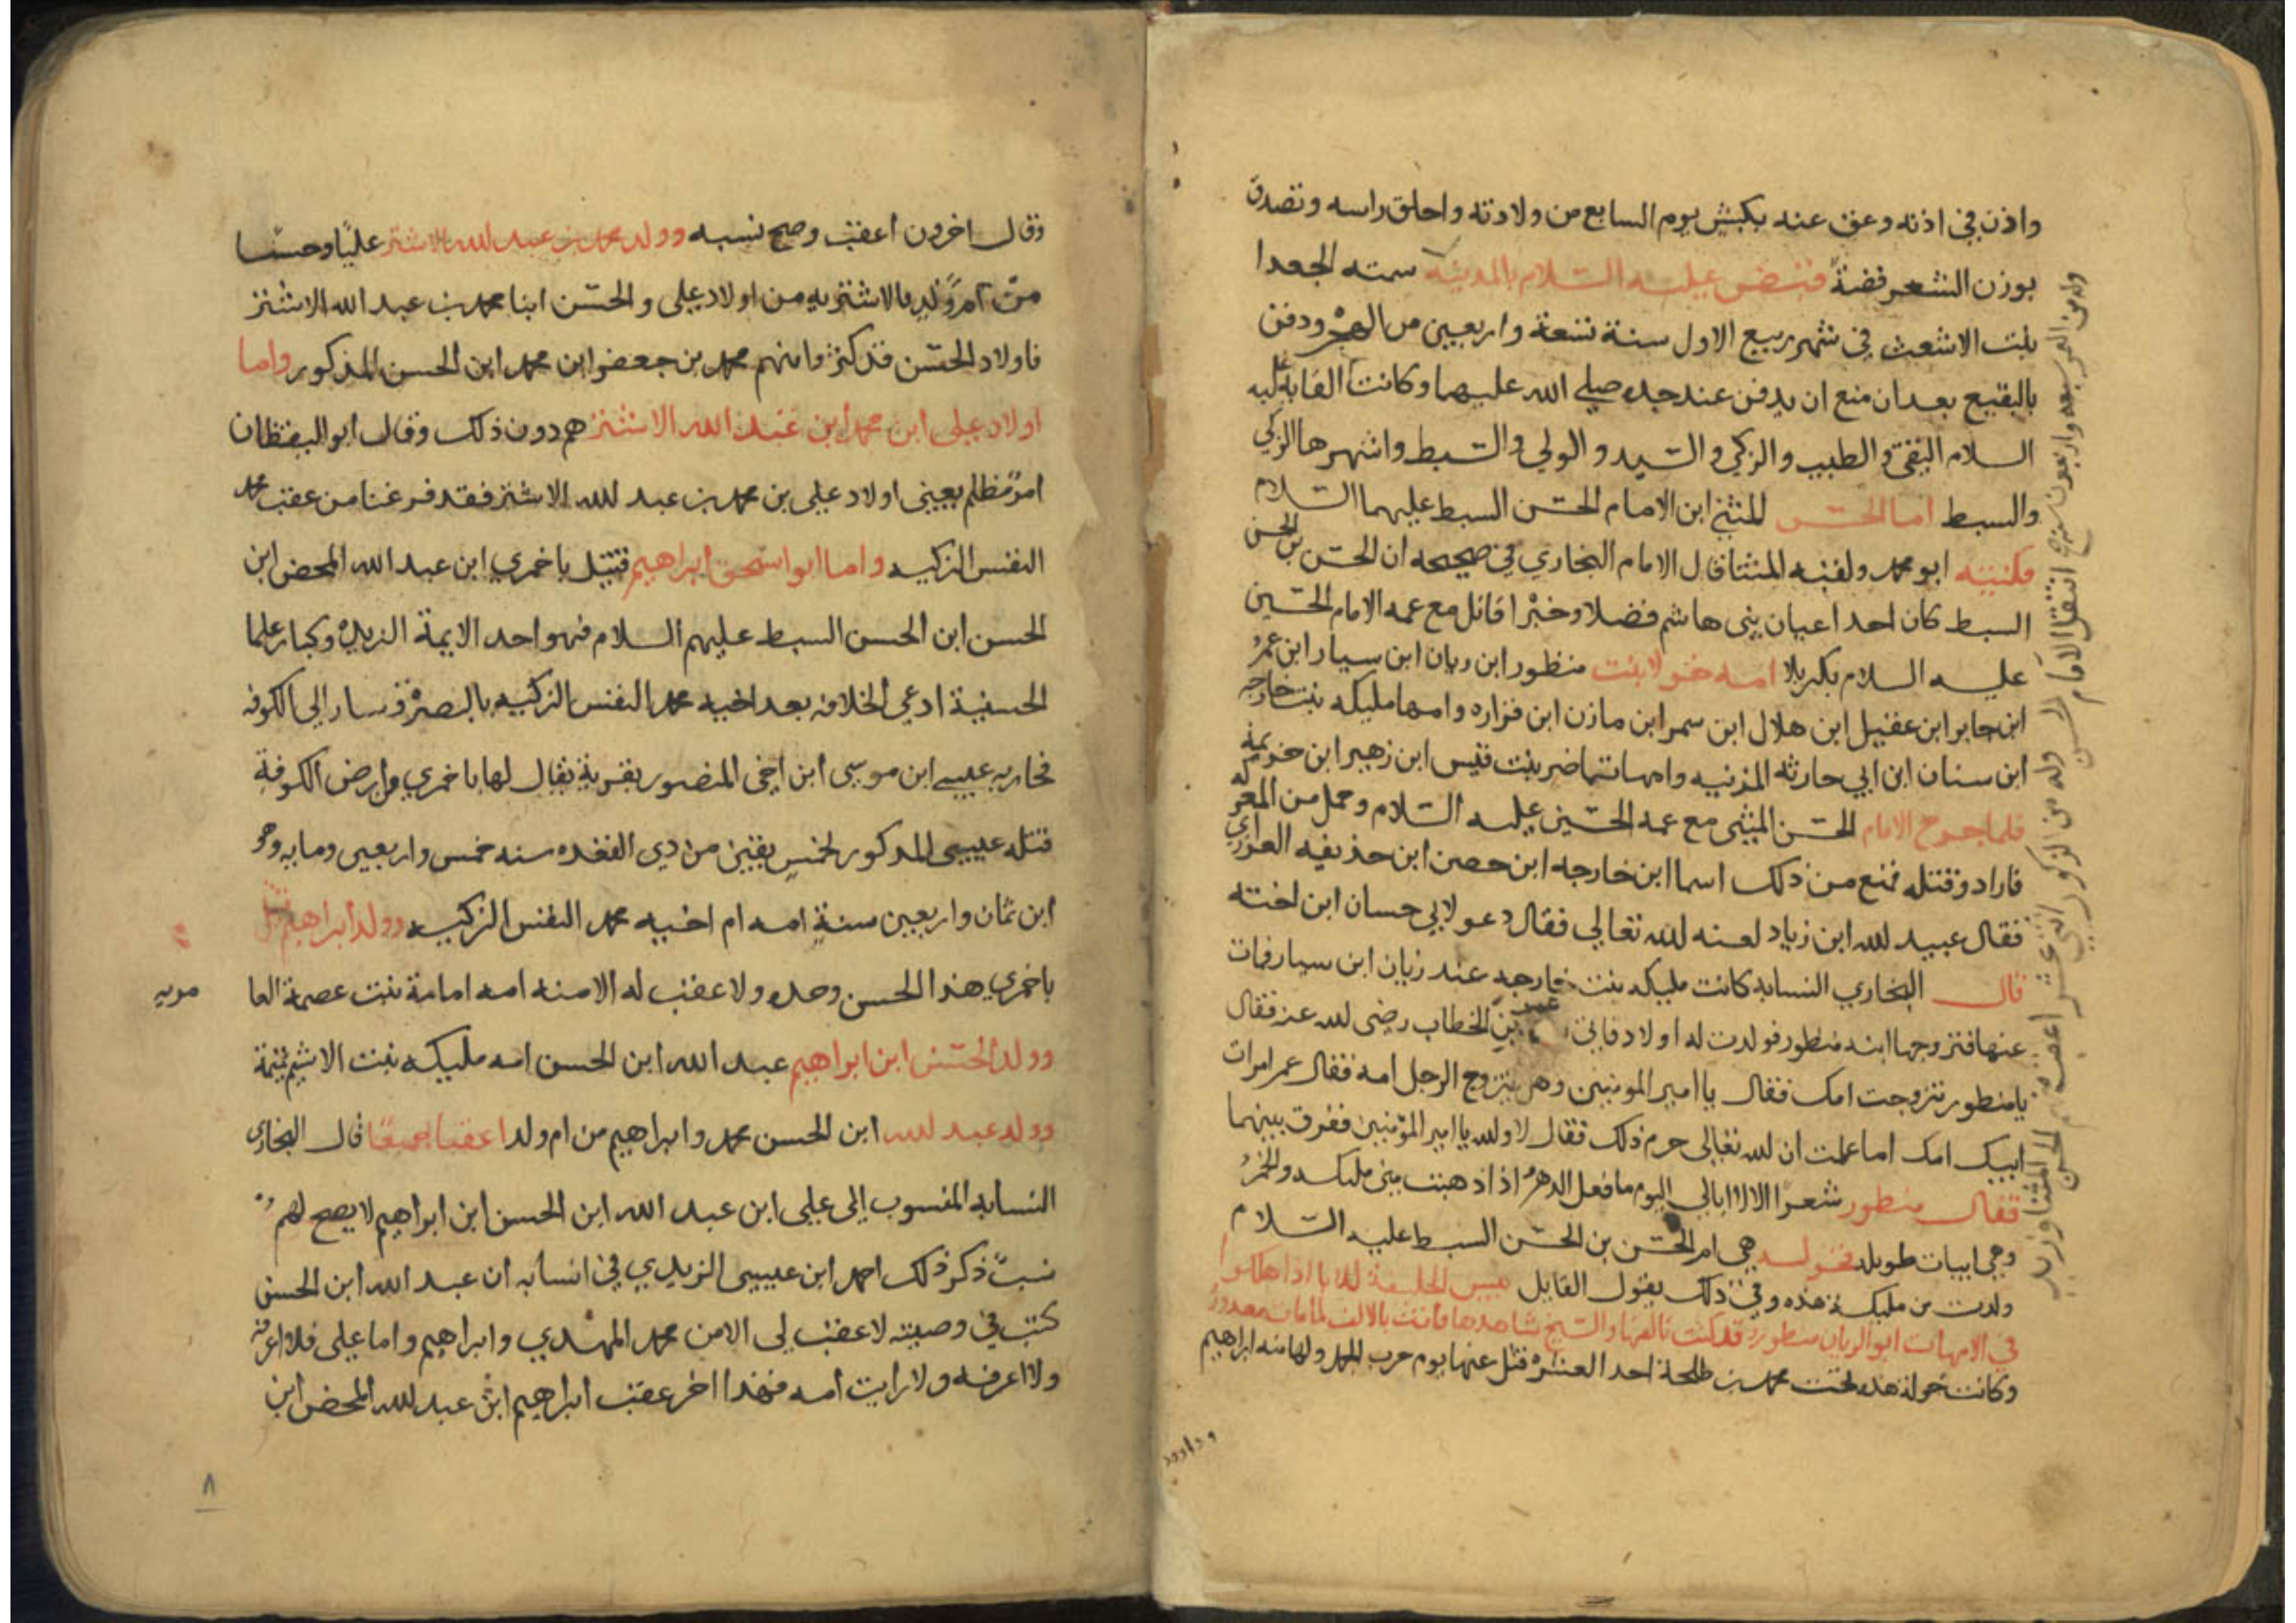 واذن في اذنه وعق عنه بكبش يوم السابع من ولادته واحلق راسه وتصدق
بوزن الشعر فضة فقبض عليه السلام بالمدينة سمته الجعدا
بلت الاشعث في شهر ربيع الاول سنة تسعة واربعين من الهجر ودفن
بالبقيع بعد ان منع ان يدفن عند جده صلى الله عليهما وكانت القابه عليه
السلام التقي والطيب والزكي والسيد والولي والسبط واشهرها الزكي
والسبط اما الحسن المثني ابن الامام الحسن السبط عليهما السلام
فكنيته ابو محمد ولقبه المثنا قال الامام البخاري في صحيحه ان الحسن بن الحسن
السبط كان احد اعيان بني هاشم فضلا وخبرا قاتل مع عمه الامام الحسين
عليه السلام بكربلا امه خولا بنت منظور ابن ربان ابن سيار ابن عمر
ابن جابر ابن عقيل ابن هلال ابن سمر ابن مازن ابن فزاره وامها مليكه بنت خارجه
ابن سنان ابن ابي حارثه المزنيه وامها تماضر بنت قيس ابن زهير ابن خزيمة
فلما جرح الامام الحسن المثنى مع عمه الحسين عليه السلام وحمل من المعركه
فارادو قتله فمنع من ذلك اسما ابن خارجه ابن حصن ابن حذيفه الفزاري
فقال عبيد لله ابن زياد لعنه لله تعالى فقال دعو لابي حسان ابن اخته
قال البخاري النسابه كانت مليكه بنت خارجه عند زبان ابن سيار فمات
عنها فتزوجها ابنه منظور فولدت له اولاد فاتي عمر بن الخطاب رضى لله عنه فقال
يا منظور تتزوجت امك فقال يا امير المومنين وهل يتزوج الرجل امه فقال عمر امرات
ابيك امك اما علمت ان لله تعالى حرم ذلك فقال لا ولله يا امير المؤمنين ففرق بينهما
فقال منظور شعرا الا لا ابالي اليوم ما فعل الدهر اذا ذهبت مني مليكه والخمر
وهي ابيات طويله فخوله هي ام الحسن بن الحسن السبط عليه السلام
ولدت من مليكة هذه وفي ذلك يقول القايل بيس الخليفة للابا اذا هلكوا
في الامهات ابو الريان منظور قد كنت تالفها والشيخ شاهدها
وكانت خولة هذه تحت محمد بن طلحة احد العشره قتل عنها يوم حرب الجمل ولها منه ابراهيم
وداوود
ولد من العمر سبعه واربعون سنه انتقل الامام الحسن وله من الذكور اثني عشر
الحسن المثنا وزيد
وقال اخرون اعقب وصح نسبه وولد محمد بن عبد لله الاشتر عليا وحسنا
من ام ولد بالاشتريه من اولاد علي والحسن ابنا محمد بن عبد الله الاشتر
فاولاد الحسن قد كثروا منهم محمد بن جعفر ابن محمد ابن الحسن المذكور واما
اولاد على ابن محمد ابن عبد الله الاشتر هم دون ذلك وقال ابو اليقظان
امر مظلم يعيني اولاد علي بن محمد بن عبد لله الاشتر فقد فرغنا من عقب محمد
النفس الزكيه واما ابو اسحق ابراهيم قتيل باخمري ابن عبد الله المحض ابن
الحسن ابن الحسن السبط عليهم السلام فهو احد الايمة الزيديه وكبار علما
الحسنية ادعي الخلافه بعد اخيه محمد النفس الزكيه بالبصرة وسار الى الكوفه
فحاربه عيسى ابن موسى ابن اخي المنصور بقرية يقال لها باخمري من ارض الكوفة
قتله عيسى المذكور لخمس بقين من ذي القعده سنه خمس واربعين ومايه وهو
ابن ثمان واربعين سنة امه ام اخيه محمد النفس الزكيه وولد ابراهيم قتيل
باخمري هذا الحسن وحده ولا عقب له الا منه امه امامة بنت عصمة العا
مريه
وولد الحسن ابن ابراهيم عبد الله ابن الحسن امه مليكه بنت الاشيم تميمة
وولد عبد لله ابن الحسن محمد وابراهيم من ام ولد اعقبا جميعا قال البخاري
النسابه المنسوب الى علي ابن عبد الله ابن الحسن ابن ابراهيم لا يصح لهم
نسب ذكر ذلك احمد ابن عيسى الزيدي في انسابه ان عبد الله ابن الحسن
كتب في وصيته لا عقب لى الا من محمد المهدي وابراهيم واما على فلا اعرفه
ولا اعرفه ولا رايت امه فهذا اخر عقب ابراهيم ابن عبد لله المحض ابن
٨